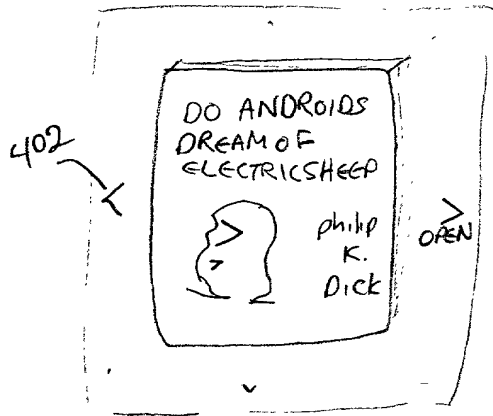 402
DO ANDROIDS
DREAM OF
ELECTRICSHEEP
philip
K.
Dick
OPEN